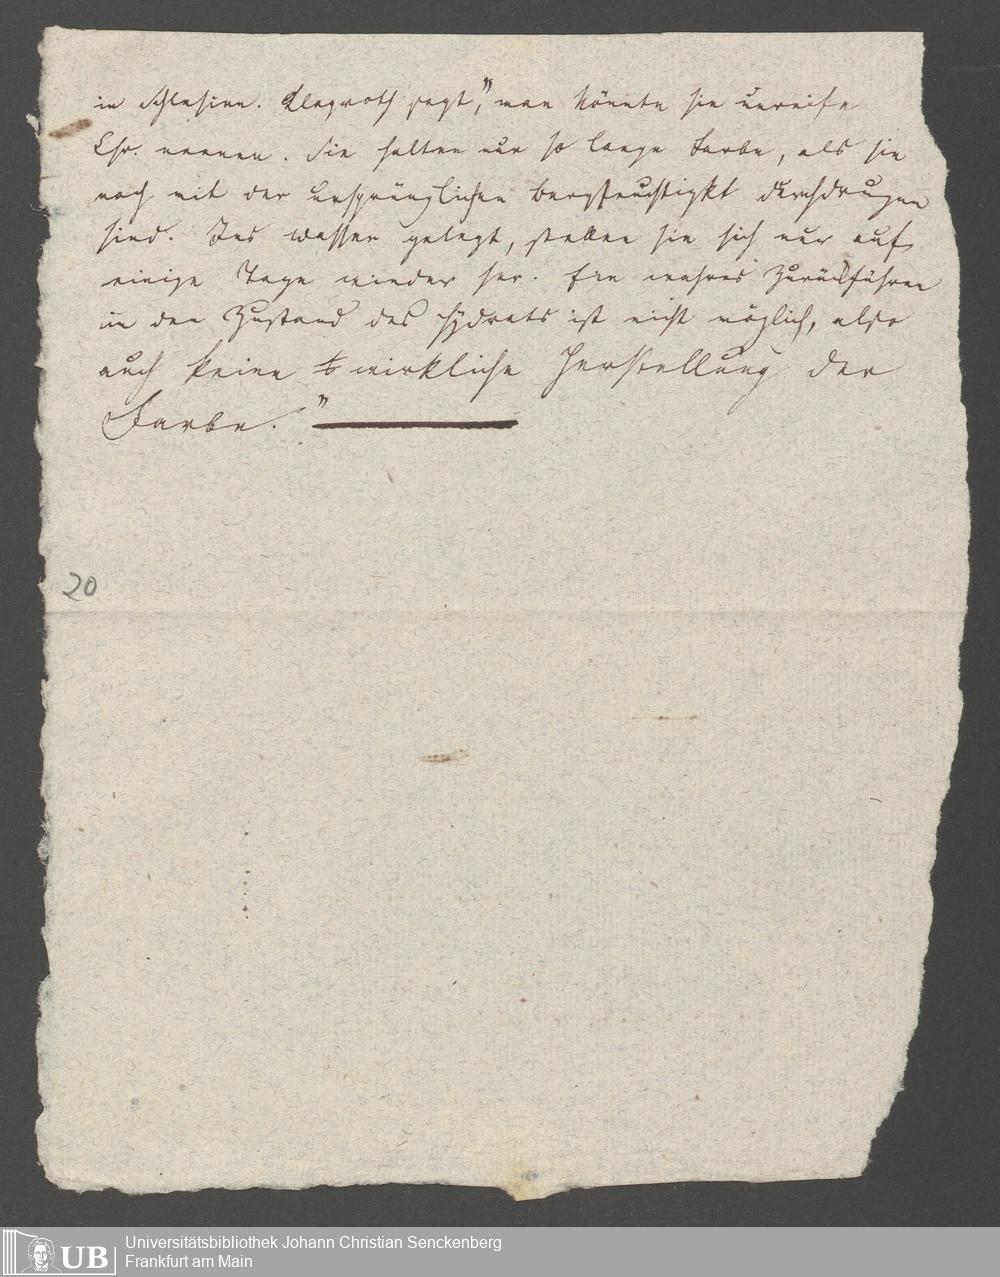 in Schlesien. Klaproth sagt, "man könnte sie unreife
Chr. nennen. Sie halten nur so lange Farbe, als sie
noch mit der ursprünglichen Bergfeuchtigkt durchdrungen
sind. Ins Wasser gelegt, stellen sie sich nur auf
einige Tage wieder her. Ein wahres Zurückführen
in den Zustand des Hydrats ist nicht möglich, also
auch keine wirkliche Herstellung der
Farbe."
20
UB
Universitätsbibliothek Johann Christian Senckenberg
Frankfurt am Main